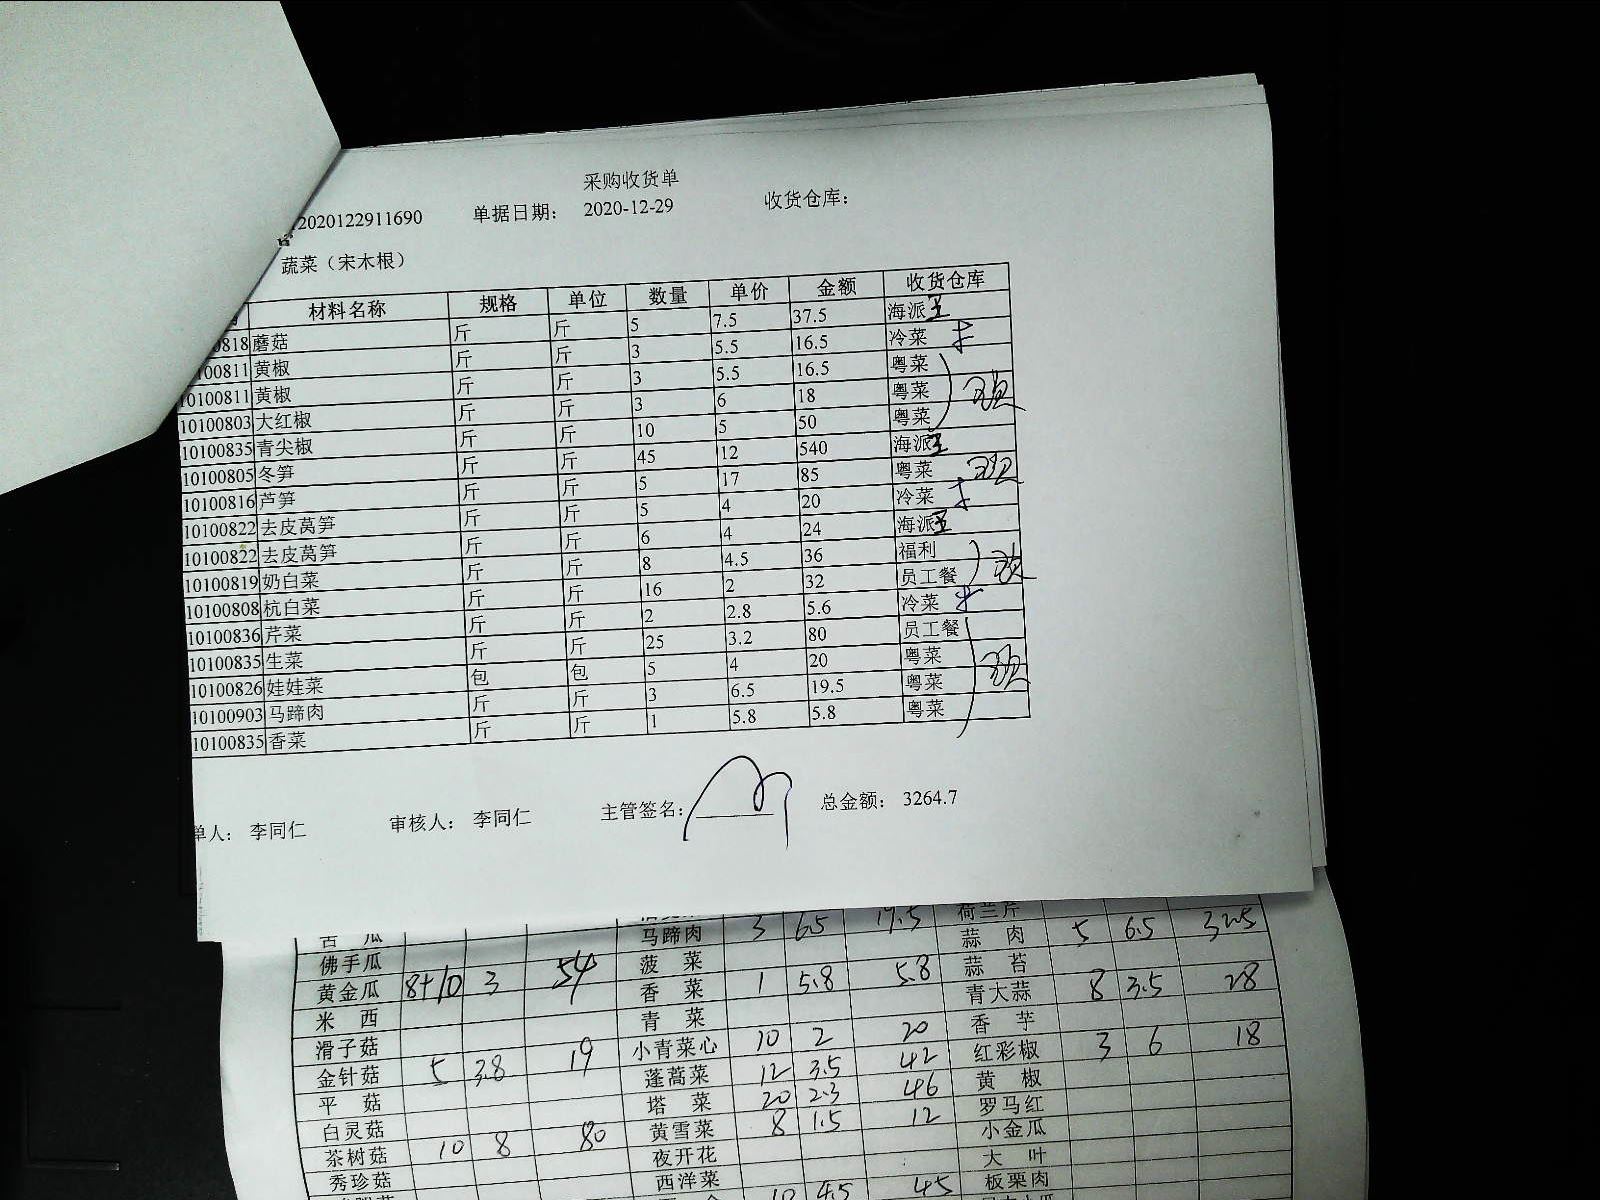 采购收货单
2020122911690 单据日期： 2020-12-29 收货仓库：
蔬菜（宋木根）
材料名称 规格 单位 数量 单价 金额 收货仓库
0818 蘑菇 斤 斤 5 7.5 37.5 海派 王
100811 黄椒 斤 斤 3 5.5 16.5 冷菜
10100811 黄椒 斤 斤 3 5.5 16.5 粤菜
10100803 大红椒 斤 斤 3 6 18 粤菜
10100835 青尖椒 斤 斤 10 5 50 粤菜
10100805 冬笋 斤 斤 45 12 540 海派 王
10100816 芦笋 斤 斤 5 17 85 粤菜
10100822 去皮莴笋 斤 斤 5 4 20 冷菜
10100822 去皮莴笋 斤 斤 6 4 24 海派 王
10100819 奶白菜 斤 斤 8 4.5 36 福利
10100808 杭白菜 斤 斤 16 2 32 员工餐
10100836 芹菜 斤 斤 2 2.8 5.6 冷菜
10100835 生菜 斤 斤 25 3.2 80 员工餐
10100826 娃娃菜 包 包 5 4 20 粤菜
10100903 马蹄肉 斤 斤 3 6.5 19.5 粤菜
10100835 香菜 斤 斤 1 5.8 5.8 粤菜
单人： 李同仁 审核人： 李同仁 主管签名： 总金额： 3264.7
苦瓜 马蹄肉 3 6.5 19.5 荷兰芹
佛手瓜 菠菜 蒜肉 5 6.5 32.5
黄金瓜 8+10 3 54 香菜 1 5.8 5.8 蒜苔
米西 青菜 青大蒜 8 3.5 28
滑子菇 小青菜心 10 2 20 香芋
金针菇 5 3.8 19 蓬蒿菜 12 3.5 42 红彩椒 3 6 18
平菇 塔菜 20 2.3 46 黄椒
白灵菇 黄雪菜 8 1.5 12 罗马红
茶树菇 10 8 80 夜开花 小金瓜
秀珍菇 西洋菜 大叶
10 4.5 45 板栗肉